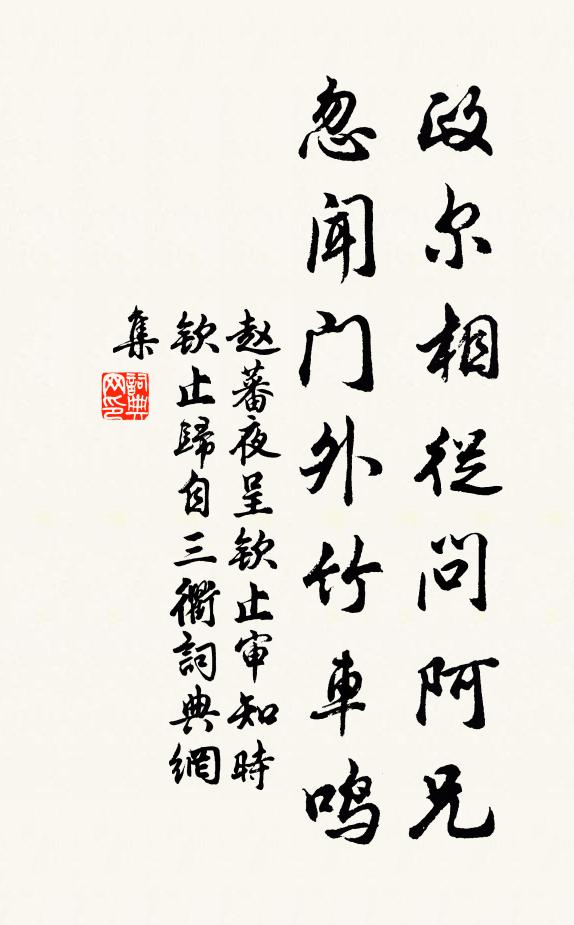 政尔相從问阿兄
忽闻门外竹車鸣
赵蕃夜呈欽止审知時
欽止歸自三衢詞典網
集
詞典网印